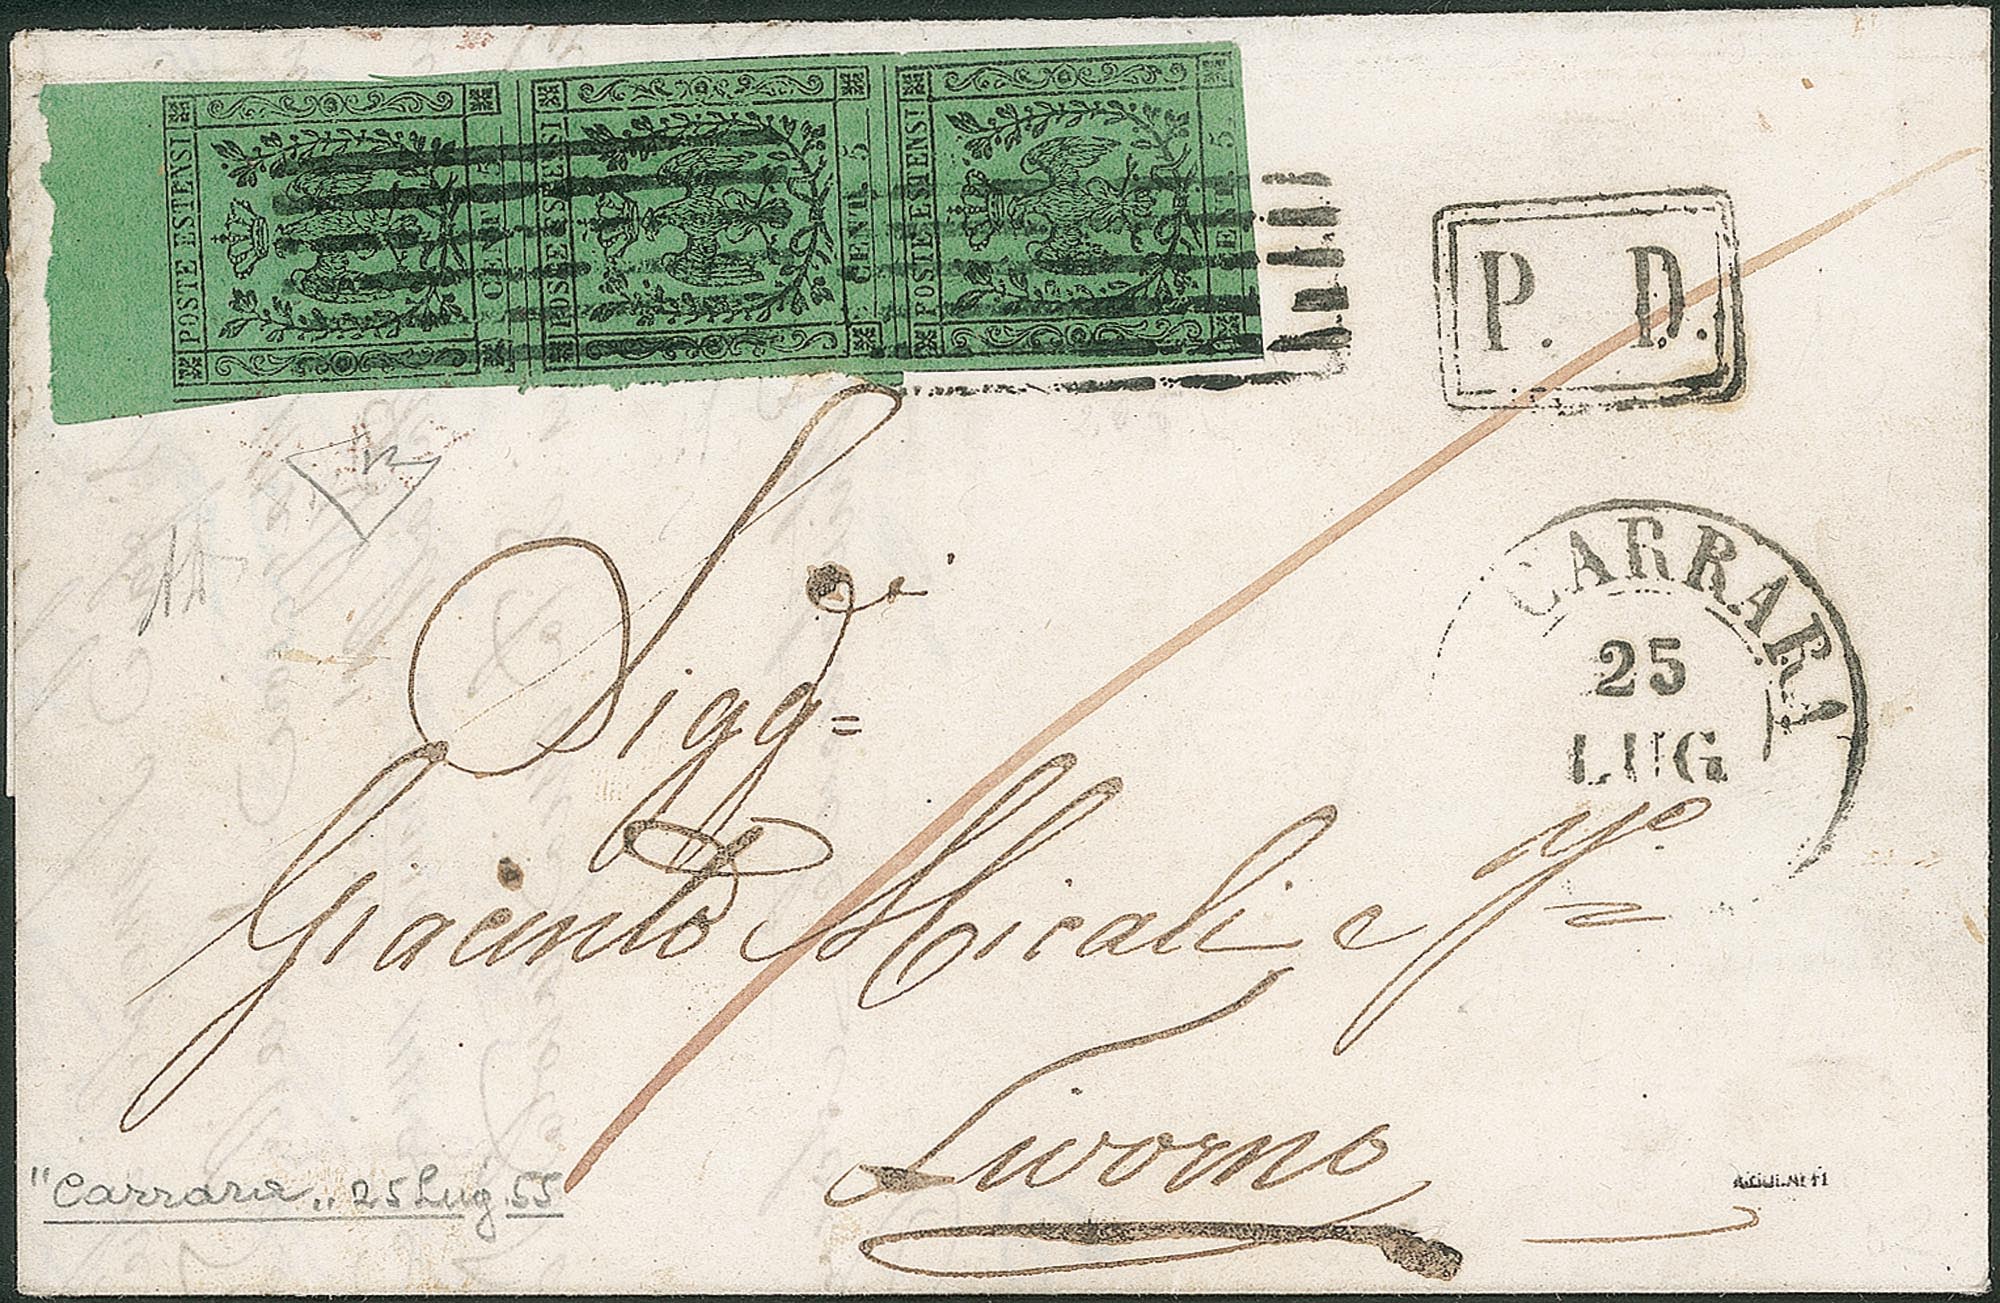 POSTE ESTENSI
CENT. 5.
POSTE ESTENSI
CENT. 5
POSTE ESTENSI
CENT. 5.
P. D.
CARRARA
25
LUG
Sigg=ri
Giacinto Micali e Fo=
Livorno
"Carrara„ 25 Lug 55